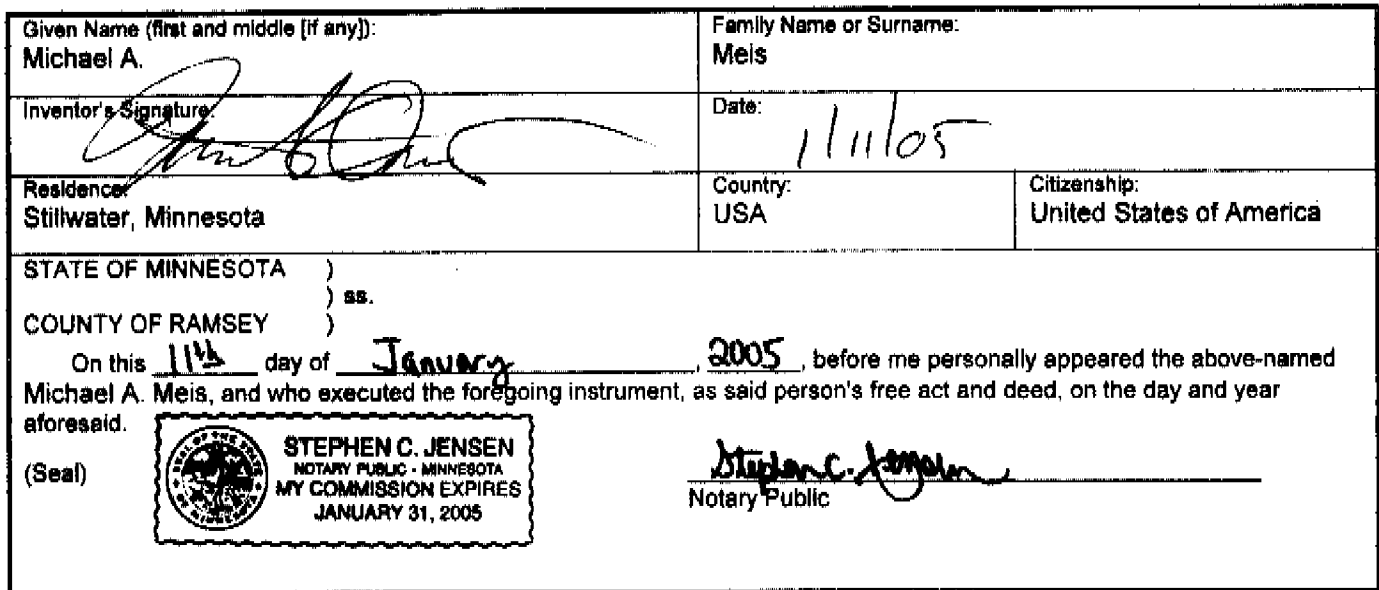 Given Name (first and middle [if any]):
Michael A.
Family Name or Surname:
Meis
Inventor's Signature:
Date:
1/11/05
Residence:
Stillwater, Minnesota
Country:
USA
Citizenship:
United States of America
STATE OF MINNESOTA )
) ss.
COUNTY OF RAMSEY )
On this 11th day of January, 2005, before me personally appeared the above-named
Michael A. Meis, and who executed the foregoing instrument, as said person's free act and deed, on the day and year
aforesaid.
(Seal)
SEAL OF THE STATE OF MINNESOTA
STEPHEN C. JENSEN
NOTARY PUBLIC - MINNESOTA
MY COMMISSION EXPIRES
JANUARY 31, 2005
Stephen C. Jensen
Notary Public